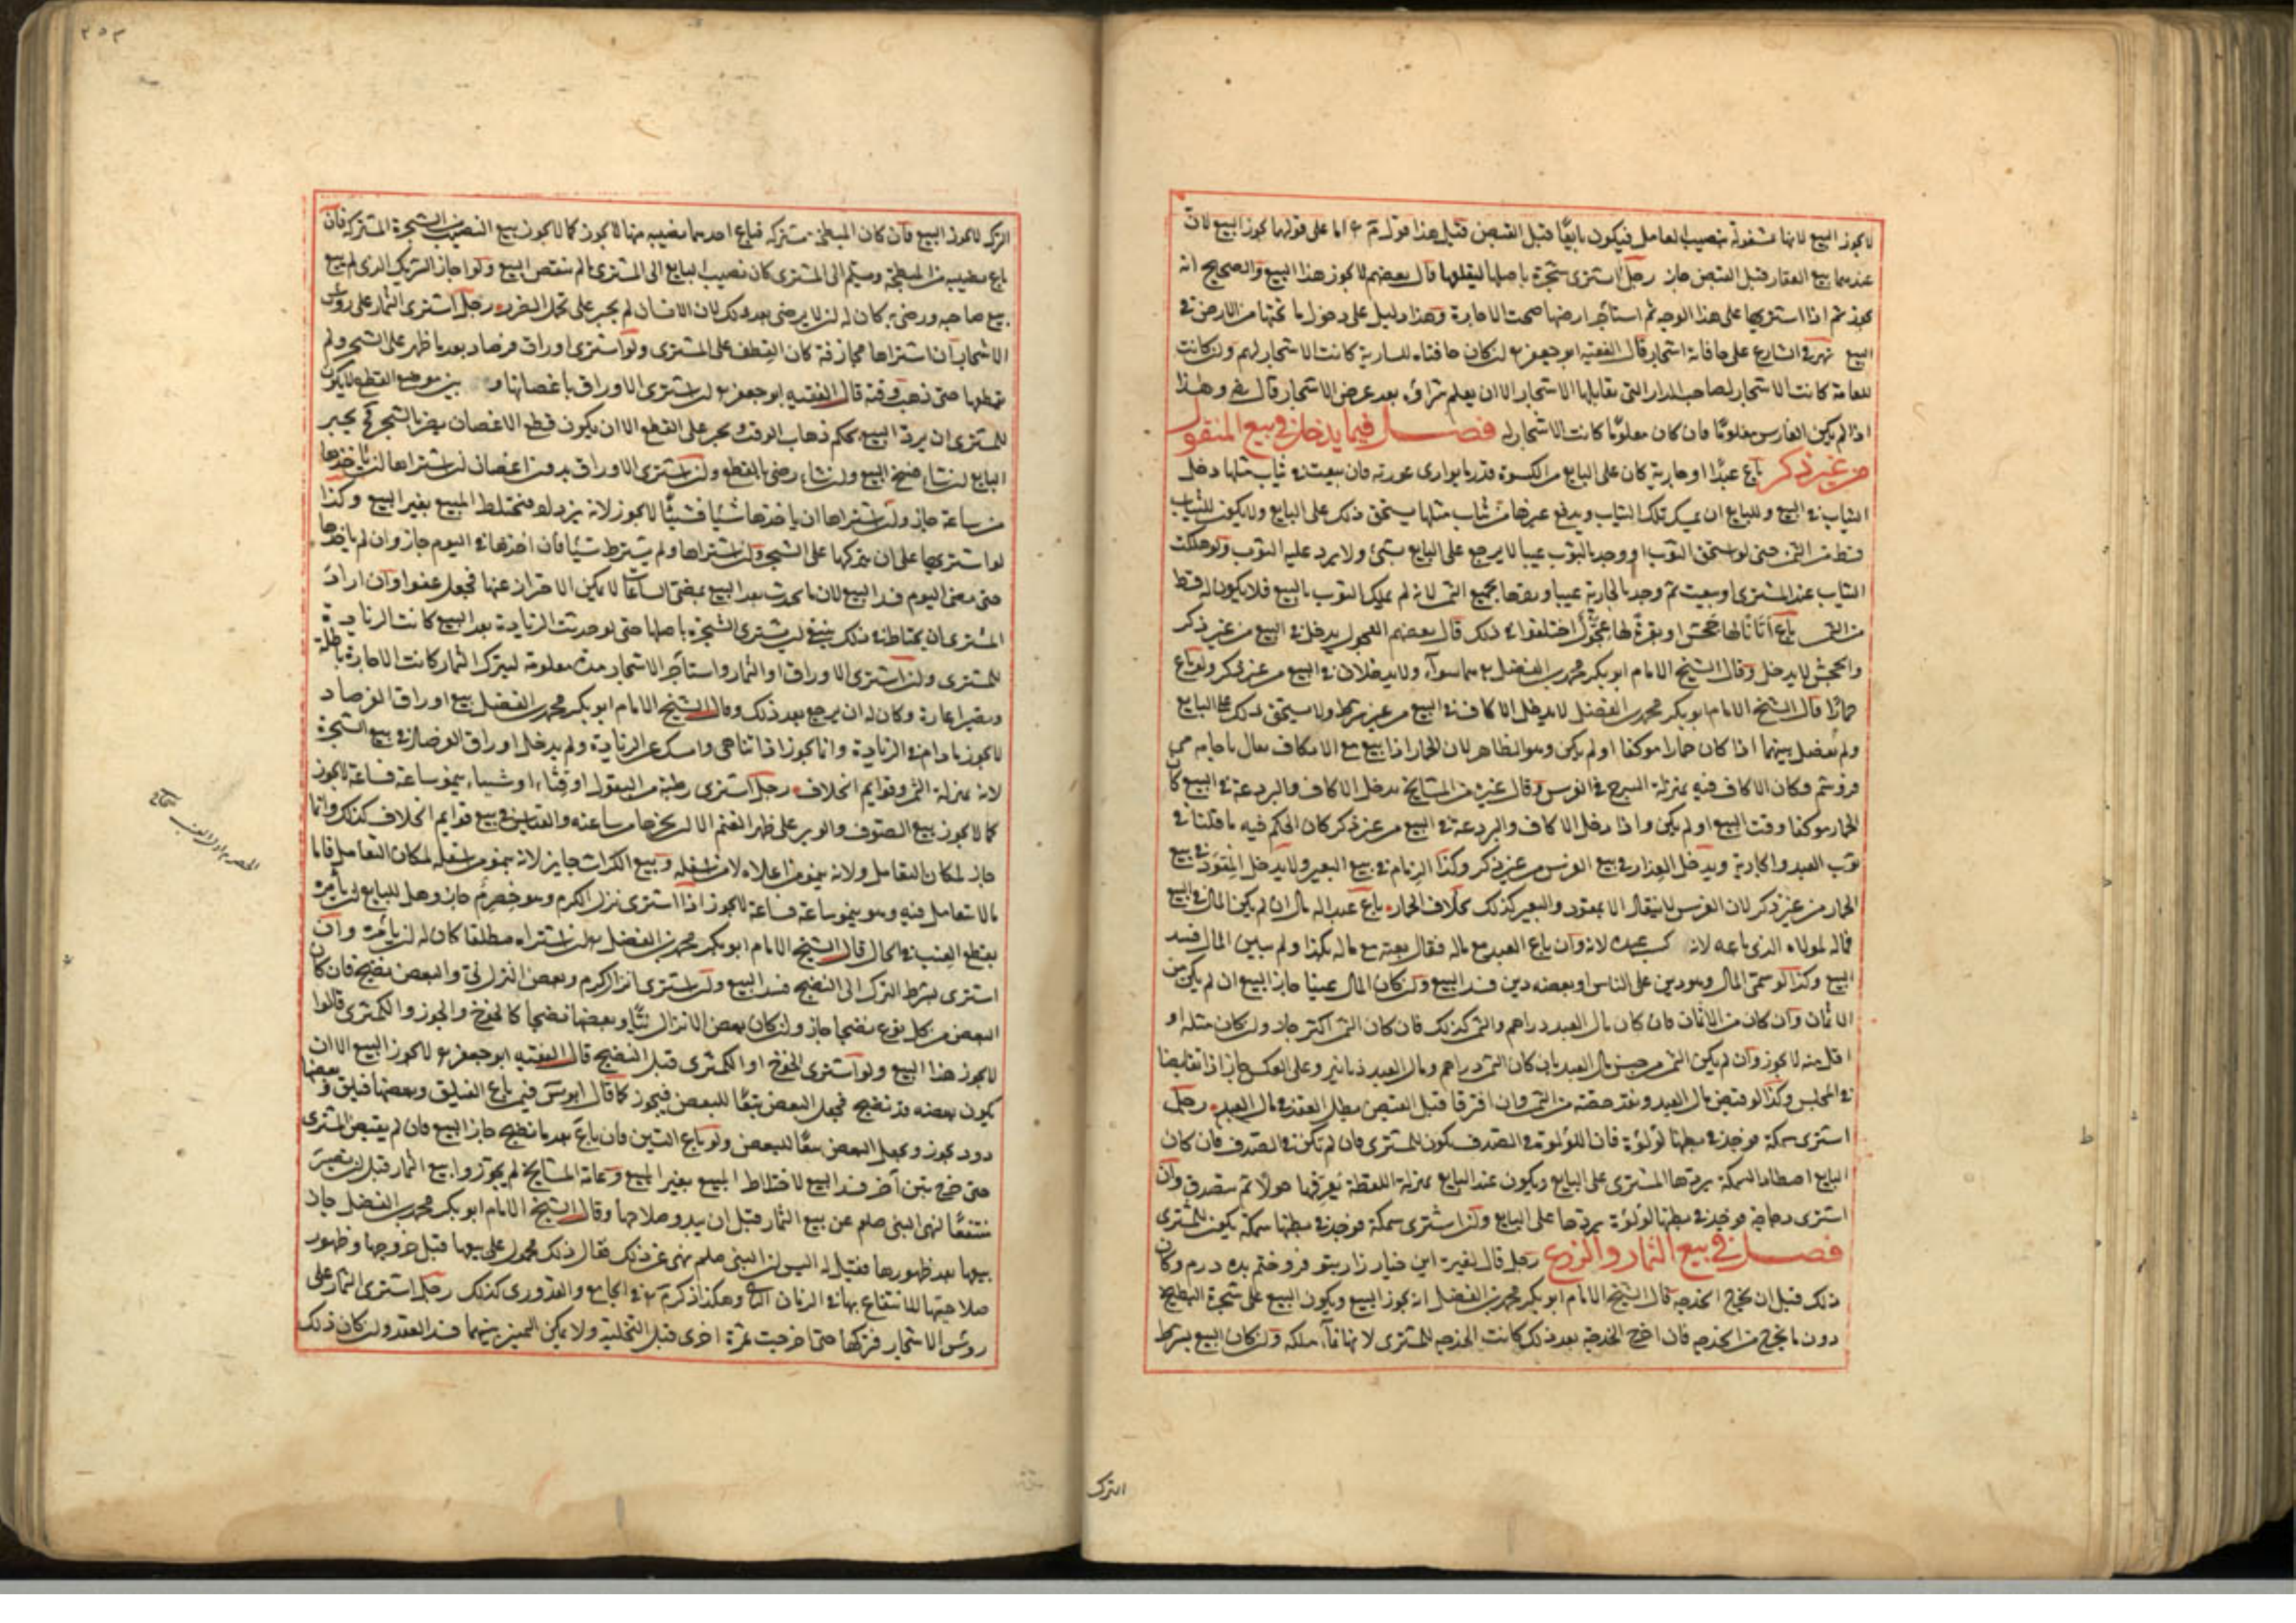 لا يجوز البيع لانها مشغولة بنصيب العامل فيكون بائعا قبل القبض قيل هذا قول م ع اما على قولهما يجوز البيع لان
عندهما بيع العقار قبل القبض جائز رجل اشترى شجرة باصلها ليقلعها قال بعضهم لا يجوز هذا البيع والصحيح انه
يجوز ثم اذا اشتريها على هذا الوجه ثم استأجر ارضها صحت الاجارة وهذا دليل على دخول ما تحتها من الارض في
البيع نهر في الشارع على حافاته اشجار قال الفقيه ابو جعفر ع ان كان حافتاه للسارية كانت الاشجار لهم وان كانت
للعامة كانت الاشجار لصاحب الدار التي يقابلها الاشجار الا ان يعلم شراؤه بعد غرس الاشجار قال رض وهذا
اذا لم يكن الغارس معلوما فان كان معلوما كانت الاشجار له فصل فيما يدخل في بيع المنقول
من غير ذكر باع عبدا او جارية كان على البايع من الكسوة قدر ما يوارى عورته فان بيعت في ثياب مثلها دخل
الثياب في البيع وللبايع ان يمسك تلك الثياب ويدفع غيرها من ثياب مثلها يستحق ذلك على البايع ولا يكون للثياب
قسط من الثمن حتى لو استحق الثوب او وجد بالثوب عيبا لا يرجع على البايع بشئ ولا يرد عليه الثوب ولو هلكت
الثياب عند المشترى او تعيبت ثم وجد بالجارية عيبا وردها بجميع الثمن لانه لم يملك الثوب بالبيع فلا يكون له قسط
من الثمن باع اتانا لها جحش او بقرة لها عجول اختلفوا في ذلك قال بعضهم العجول يدخل في البيع من غير ذكر
والجحش لا يدخل وقال الشيخ الامام ابو بكر محمد بن الفضل ع هما سواء ولا يدخلان في البيع من غير ذكر ولو باع
حمارا قال الشيخ الامام ابو بكر محمد بن الفضل لا يدخل الاكاف في البيع من غير شرط ولا يستحق ذلك على البايع
ولم يفصل بينهما اذا كان حمارا موكفا او لم يكن وهو الظاهر لان الحمار اذا بيع مع الاكاف يقال با جامه مى
فروشم وكان الاكاف فيه بمنزلة السرج في الفرس وقال غيره من المشايخ يدخل الاكاف والبردعة في البيع كان
الحمار موكفا وقت البيع او لم يكن واذا دخل الاكاف والبردعة في البيع من غير ذكر كان الحكم فيه ما قلنا في
ثوب العبد والجارية ويدخل العذار في بيع الفرس من غير ذكر وكذا الزمام في بيع البعير ولا يدخل المقود في بيع
الحمار من غير ذكر لان الفرس لا ينقاد الا بمقود والبعير كذلك بخلاف الحمار باع عبدا له مال ان لم يكن المال في البيع
فماله لمولاه الذي باعه لانه كسب عبده لانه وان باع العبد مع ماله فقال بعته مع ماله بكذا ولم يبين المال فسد
البيع وكذا لو سمى المال وهو دين على الناس او بعضه دين فسد البيع وان كان المال عينا جاز البيع ان لم يكن من
الاثمان وان كان من الاثمان فان كان مال العبد دراهم والثمن كذلك فان كان الثمن اكثر جاز وان كان مثله او
اقل منه لا يجوز وان لم يكن الثمن من جنس مال العبد بان كان الثمن دراهم ومال العبد دنانير وعلى العكس جاز اذا تقابضا
في المجلس وكذا لو قبض مال العبد ونقد حصته من الثمن وان افترقا قبل القبض بطل العقد في مال العبد رجل
اشترى سمكة فوجد في بطنها لؤلؤة فان اللؤلؤة في الصدف يكون للمشترى فان لم تكن في الصدف فان كان
البايع اصطاد السمكة يردها المشترى على البايع ويكون عند البايع بمنزلة اللقطة يعرفها حولا ثم يتصدق وان
اشترى دجاجة فوجد في بطنها لؤلؤة يردها على البايع وان اشترى سمكة فوجد في بطنها سمكة يكون للمشترى
فصل في بيع الثمار والزرع رجل قال لغيره اين خيار زار بتو فروختم بده درم وكان
ذلك قبل ان يخرج الحدجه قال الشيخ الامام ابو بكر محمد بن الفضل انه يجوز البيع ويكون البيع على شجرة البطيخ
دون ما يخرج من الحدجه فان اخرج الحدجة بعد ذلك كانت الحدجه للمشترى لانها نماء ملكه وان كان البيع بشرط
الترك
٢٥٣
الترك لا يجوز البيع فان كان المبطخة مشتركة فباع احدهما نصيبه منها لا يجوز كما لا يجوز بيع النصيب من الشجرة المشتركة فان
باع نصيبه من المبطخة وسلم الى المشترى كان نصيب البايع الى المشترى ما لم ينقض البيع ولو اجاز الشريك الذي لم يبع
بيع صاحبه ورضى به كان له ان لا يرضى بعد ذلك لان الانسان لم يجبر على تحمل الضرر رجل اشترى الثمار على رؤس
الاشجار ان اشتراها مجازفة كان القطف على المشترى ولو اشترى اوراق فرصاد بعد ما ظهر على الشجر ولم
يقطعها حتى ذهب وقته قال الفقيه ابو جعفر ع ان اشترى الاوراق باغصانها و بين موضع القطع لا يكون
للمشترى ان يرد البيع بحكم ذهاب الوقت ويجبر على القطع الا ان يكون قطع الاغصان يضر بالشجر فح يخير
البايع ان شاء فسخ البيع وان شاء رضى بالقطع وان اشترى الاوراق بدون اغصان ان اشتراها ان يأخذها
من ساعة جاز وان اشتراها ان يأخذها شيئا فشيئا لا يجوز لانه يزداد فيختلط المبيع بغير المبيع وكذا
لو اشتريها على ان يتركها على الشجر وان اشتراها ولم يشترط شيئا فان اخذها في اليوم جاز وان لم يأخذها
حتى مضى اليوم فسد البيع لان ما يحدث بعد البيع بمضى الساعات لا يمكن الاحتراز عنها فجعل عفوا وان اراد
المشترى ان يحتاط في ذلك ينبغي ان يشترى الشجرة باصلها حتى لو حدثت الزيادة بعد البيع كانت الزيادة
للمشترى وان اشترى الاوراق او الثمار واستأجر الاشجار مدة معلومة ليترك الثمار كانت الاجارة باطلة
ويصير اعارة وكان له ان يرجع بعد ذلك وقال الشيخ الامام ابو بكر محمد بن الفضل بيع اوراق الفرصاد
لا يجوز ما دام في الزيادة وانما يجوز اذا تناهى وامسك عن الزيادة ولم يدخل اوراق الفرصاد في بيع الشجرة
لانه بمنزلة الثمر وقوايم الخلاف رجل اشترى رطبة من البقول او قثاء او شيئا ينمو ساعة فساعة لا يجوز
كما لا يجوز بيع الصوف والوبر على ظهر الغنم الا ان يجزها من ساعته والقياس في بيع قوايم الخلاف كذلك وانما
جاز لمكان التعامل ولانه ينمو من اعلاه لا من اسفله وبيع الكراث جايز لانه ينمو من اسفله لمكان التعامل فاما
ما لا تعامل فيه وهو ينمو ساعة فساعة لا يجوز اذا اشترى نزل الكرم وهو حصرم جاز وهل للبايع ان يأمره
بقطع العنب في الحال قال الشيخ الامام ابو بكر محمد بن الفضل ع ان اشتراه مطلقا كان له ان يأمره وان
اشترى بشرط الترك الى النضج فسد البيع وان اشترى انزال كرم وبعض النزل نيئ والبعض نضيج فان كان
البعض من كل نوع نضيجا جاز وان كان بعض الانزال نيئا وبعضها نضيجا كالخوخ والجوز والكمثرى قالوا
لا يجوز هذا البيع ولو اشترى الخوخ او الكمثرى قبل النضج قال الفقيه ابو جعفر ع لا يجوز البيع الا ان
يكون بعضه قد نضج فيجعل البعض تبعا للبعض فيجوز كما قال ابو يس فيمن باع الفيلق وبعضها فيلق وبعضها
دود يجوز ويجعل البعض تبعا للبعض ولو باع التين فان باع بعد ما نضج جاز البيع فان لم يقبض المشترى
حتى خرج تين آخر فسد البيع لاختلاط المبيع بغير المبيع وعامة المشايخ لم يجوزوا بيع الثمار قبل ان تصير
منتفعا لنهى النبي صلعم عن بيع الثمار قبل ان يبدو صلاحها وقال الشيخ الامام ابو بكر محمد بن الفضل جاز
بيعها بعد ظهورها فقيل له اليس ان النبي صلعم نهى عن ذلك فقال ذلك محمول على بيعها قبل خروجها وظهور
صلاحيتها للانتفاع بها في الزمان الثانى وهكذا ذكر م ع في الجامع والقدورى كذلك رجل اشترى الثمار على
رؤس الاشجار فتركها حتى اخرجت ثمرة اخرى قبل التخلية ولا يمكن التمييز بينهما فسد العقد وان كان ذلك